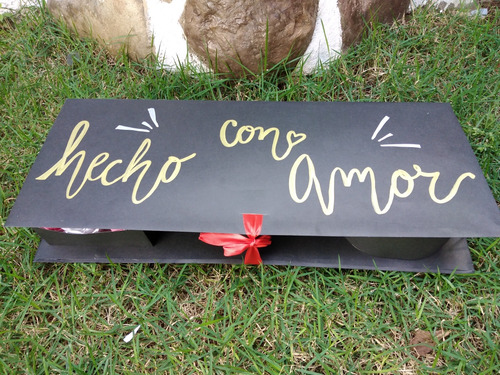 hecho con amor